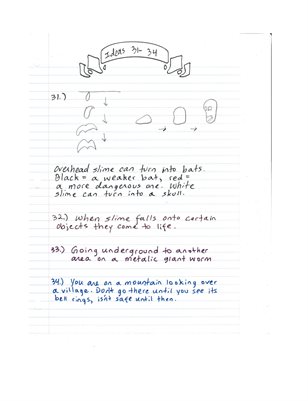 Ideas 31-34
31.)
Overhead slime can turn into bats.
Black = a weaker bat, red =
a more dangerous one. White
slime can turn into a skull.
32.) When slime falls onto certain
objects they come to life.
33.) Going underground to another
area on a metalic giant worm
34.) You are on a mountain looking over
a village. Don't go there until you see its
bell rings, isn't safe until then.